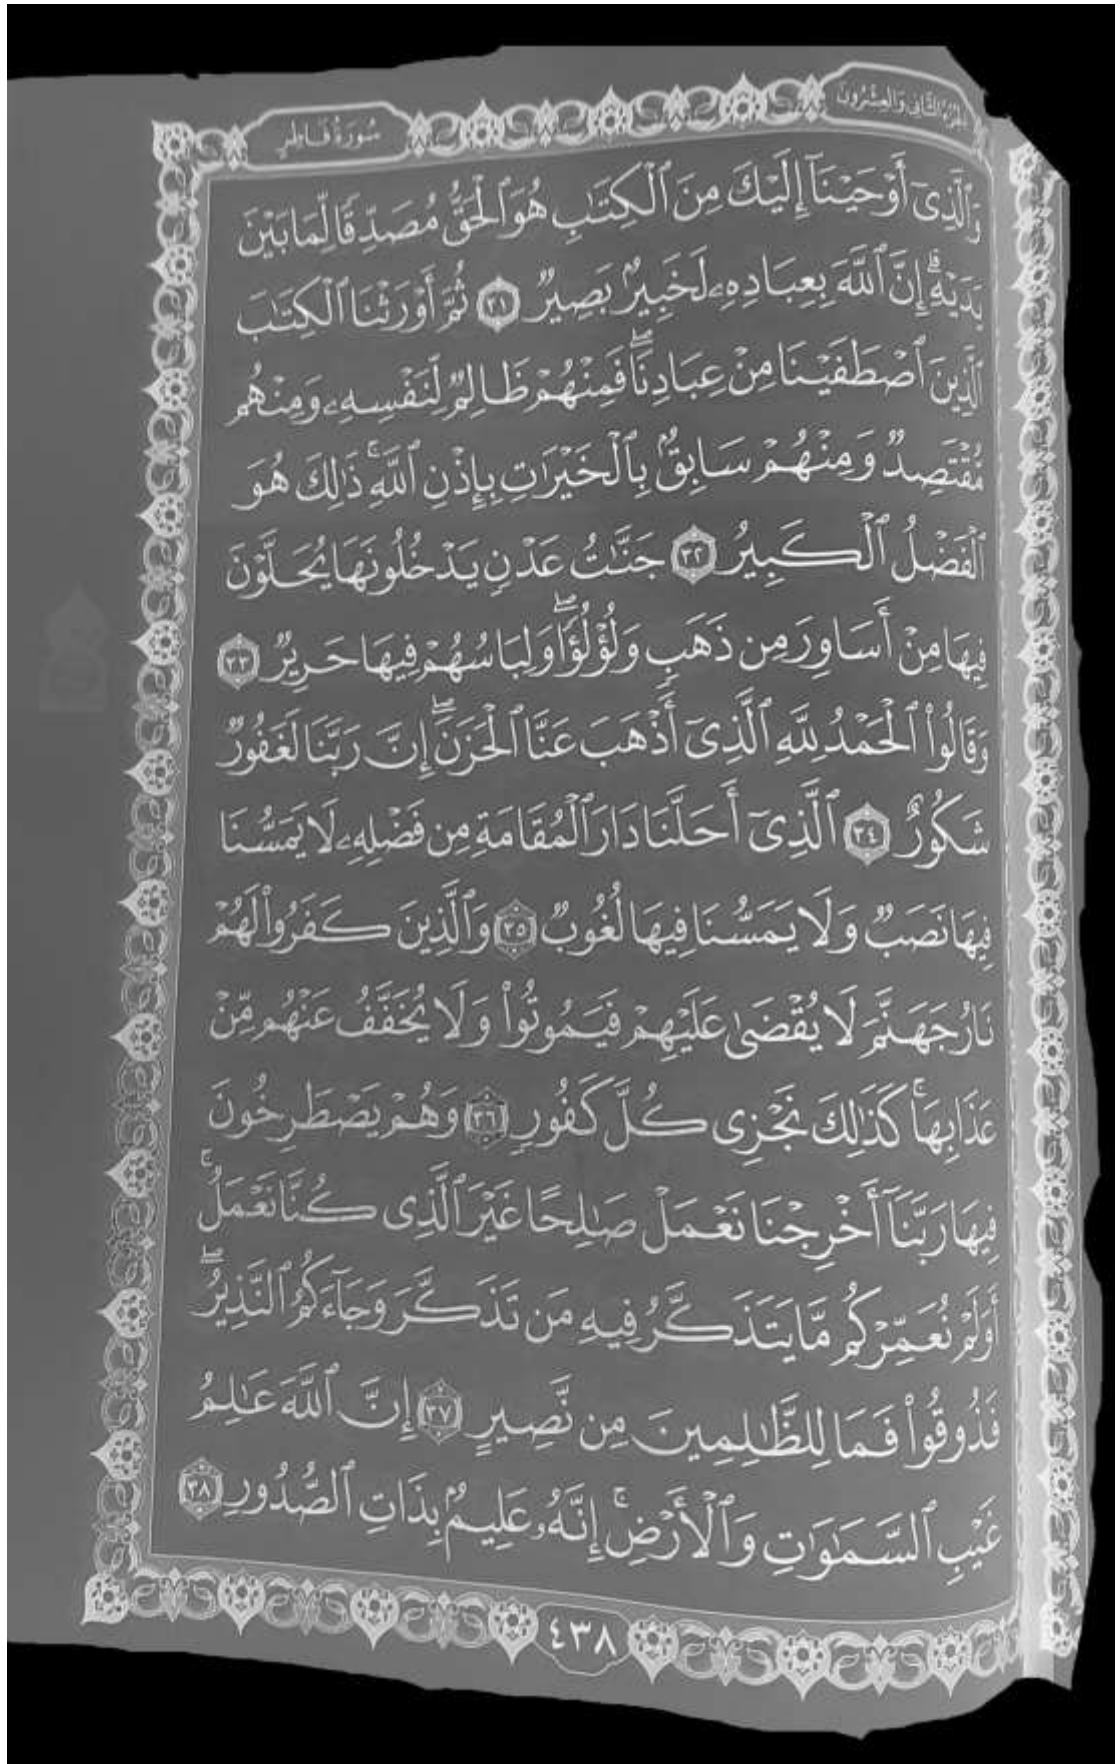 الجزء الثاني والعشرون
سورة فاطر
وَٱلَّذِىٓ أَوْحَيْنَآ إِلَيْكَ مِنَ ٱلْكِتَـٰبِ هُوَ ٱلْحَقُّ مُصَدِّقًا لِّمَا بَيْنَ
يَدَيْهِ ۗ إِنَّ ٱللَّهَ بِعِبَادِهِۦ لَخَبِيرٌۢ بَصِيرٌ ٣١ ثُمَّ أَوْرَثْنَا ٱلْكِتَـٰبَ
ٱلَّذِينَ ٱصْطَفَيْنَا مِنْ عِبَادِنَا ۖ فَمِنْهُمْ ظَالِمٌ لِّنَفْسِهِۦ وَمِنْهُم
مُّقْتَصِدٌ وَمِنْهُمْ سَابِقٌۢ بِٱلْخَيْرَٰتِ بِإِذْنِ ٱللَّهِ ۚ ذَٰلِكَ هُوَ
ٱلْفَضْلُ ٱلْكَبِيرُ ٣٢ جَنَّـٰتُ عَدْنٍ يَدْخُلُونَهَا يُحَلَّوْنَ
فِيهَا مِنْ أَسَاوِرَ مِن ذَهَبٍ وَلُؤْلُؤًا ۖ وَلِبَاسُهُمْ فِيهَا حَرِيرٌ ٣٣
وَقَالُوا۟ ٱلْحَمْدُ لِلَّهِ ٱلَّذِىٓ أَذْهَبَ عَنَّا ٱلْحَزَنَ ۖ إِنَّ رَبَّنَا لَغَفُورٌ
شَكُورٌ ٣٤ ٱلَّذِىٓ أَحَلَّنَا دَارَ ٱلْمُقَامَةِ مِن فَضْلِهِۦ لَا يَمَسُّنَا
فِيهَا نَصَبٌ وَلَا يَمَسُّنَا فِيهَا لُغُوبٌ ٣٥ وَٱلَّذِينَ كَفَرُوا۟ لَهُمْ
نَارُ جَهَنَّمَ لَا يُقْضَىٰ عَلَيْهِمْ فَيَمُوتُوا۟ وَلَا يُخَفَّفُ عَنْهُم مِّنْ
عَذَابِهَا ۚ كَذَٰلِكَ نَجْزِى كُلَّ كَفُورٍ ٣٦ وَهُمْ يَصْطَرِخُونَ
فِيهَا رَبَّنَآ أَخْرِجْنَا نَعْمَلْ صَـٰلِحًا غَيْرَ ٱلَّذِى كُنَّا نَعْمَلُ ۚ
أَوَلَمْ نُعَمِّرْكُم مَّا يَتَذَكَّرُ فِيهِ مَن تَذَكَّرَ وَجَآءَكُمُ ٱلنَّذِيرُ ۖ
فَذُوقُوا۟ فَمَا لِلظَّـٰلِمِينَ مِن نَّصِيرٍ ٣٧ إِنَّ ٱللَّهَ عَـٰلِمُ
غَيْبِ ٱلسَّمَـٰوَٰتِ وَٱلْأَرْضِ ۚ إِنَّهُۥ عَلِيمٌۢ بِذَاتِ ٱلصُّدُورِ ٣٨
٤٣٨